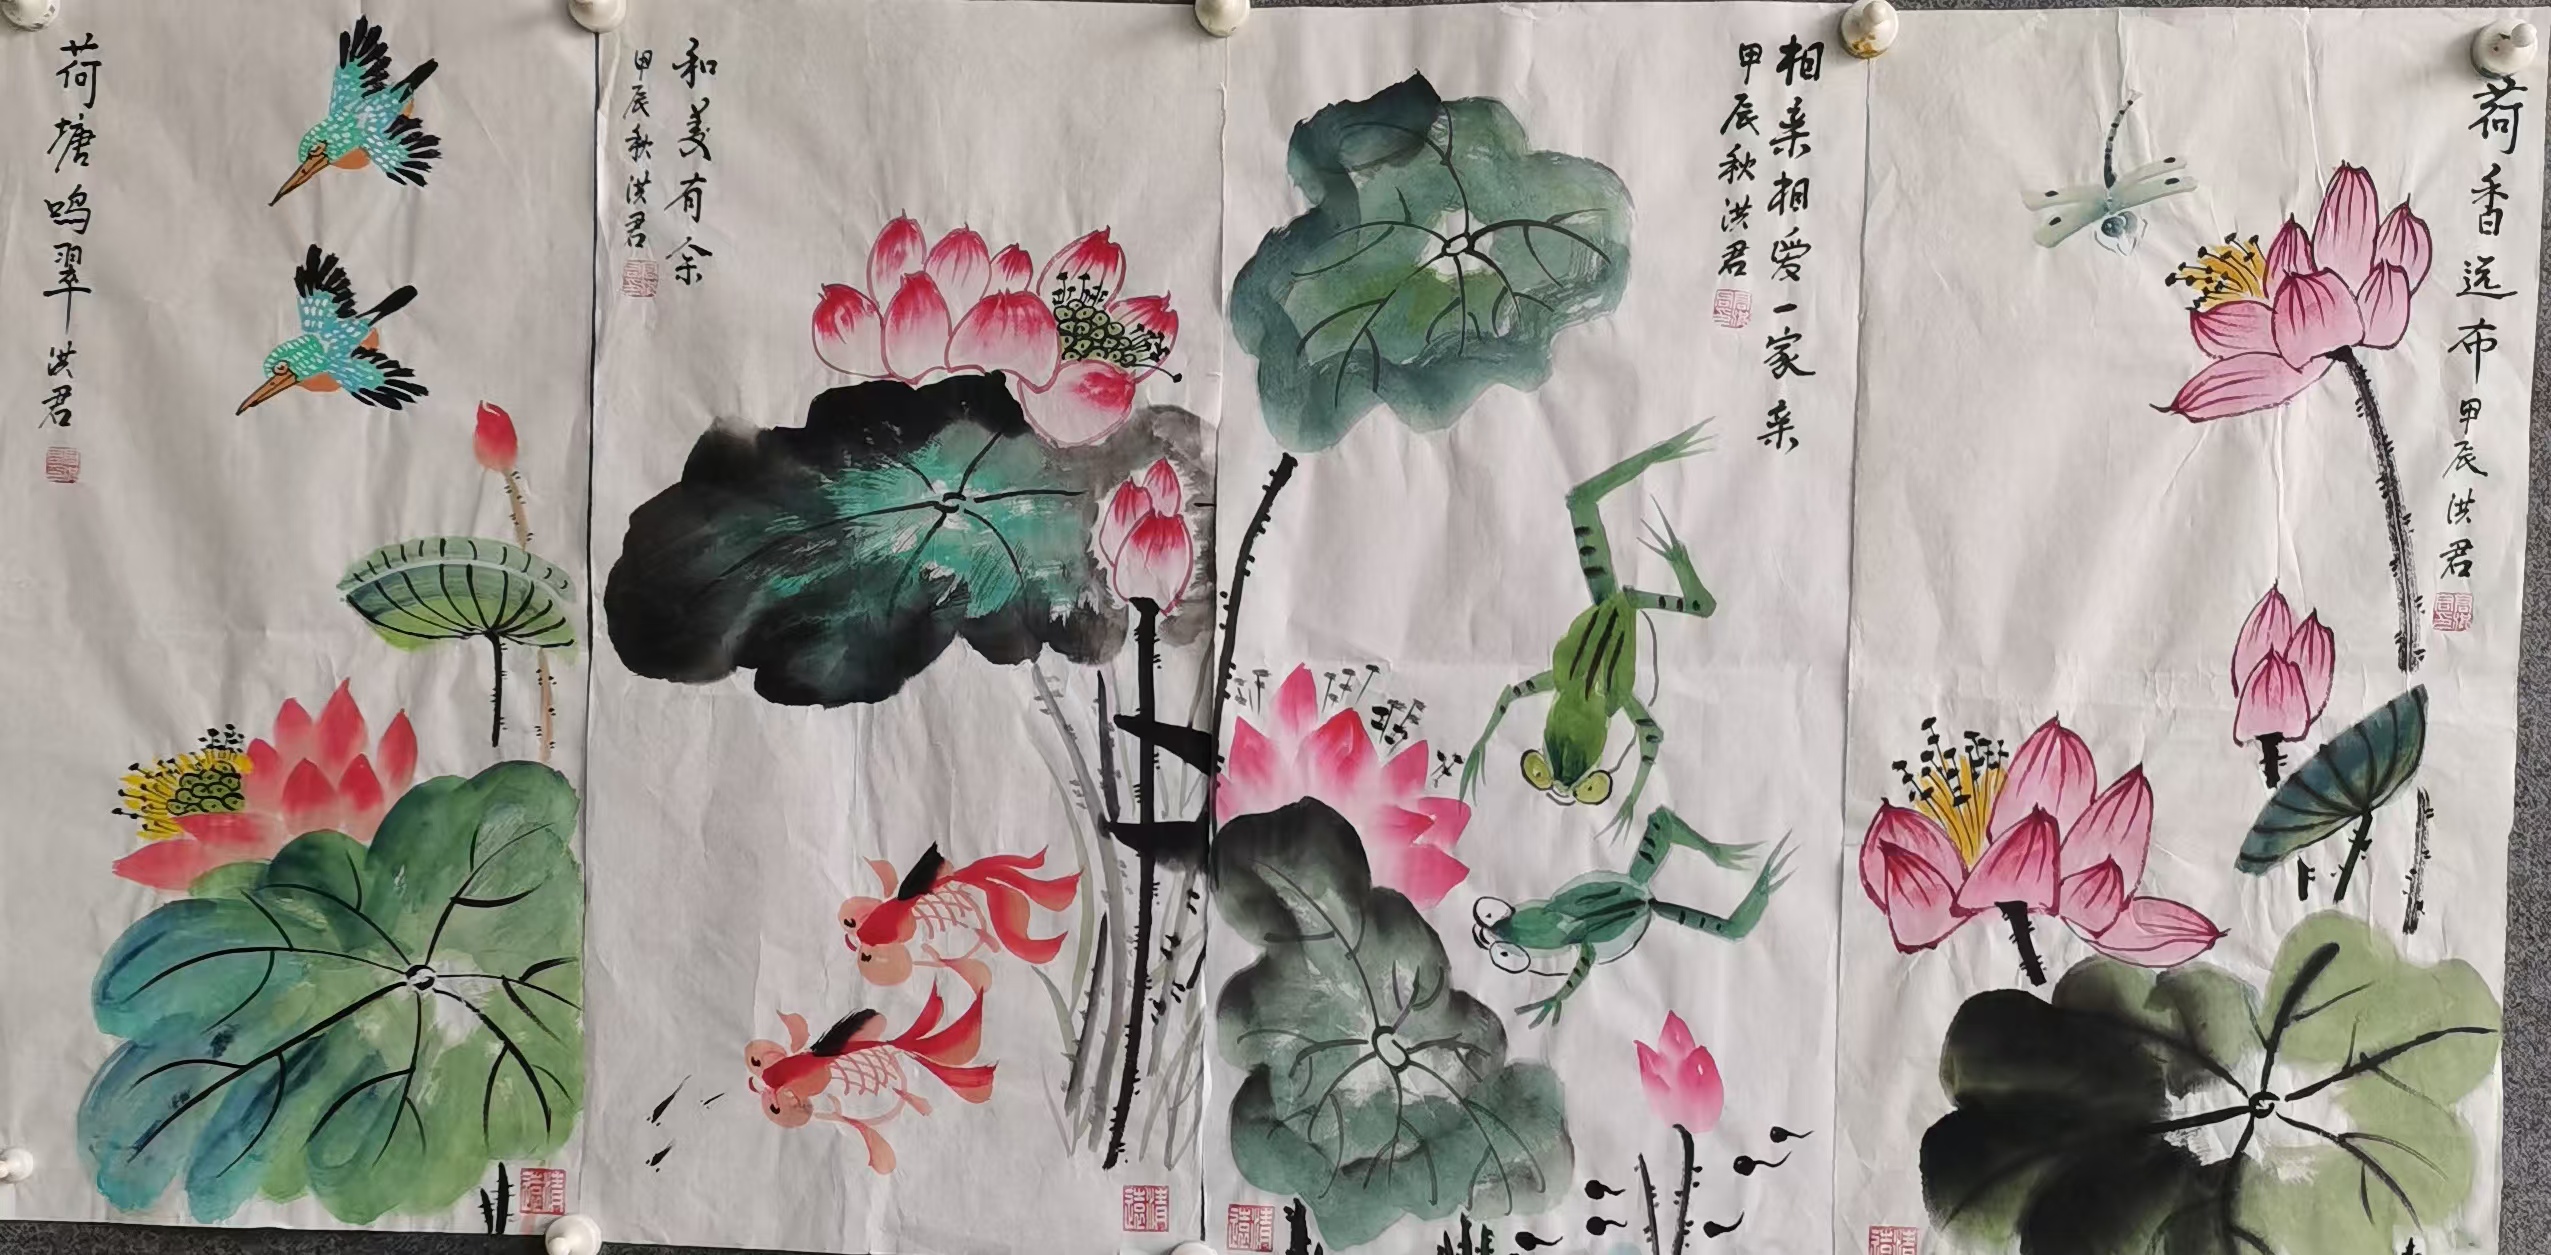 荷塘鸣翠 洪君
和美有余
甲辰秋 洪君
相亲相爱一家亲
甲辰秋 洪君
荷香远布 甲辰 洪君
清远
清远
清远
清远